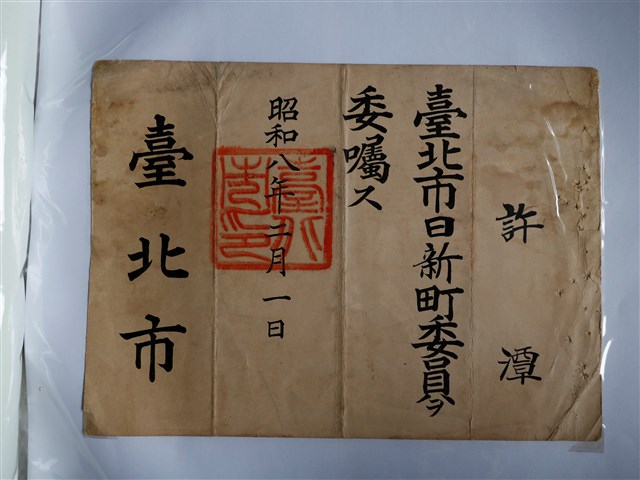 許潭
臺北市日新町委員ヲ
委囑ス
昭和八年二月一日
臺北市
臺北市印